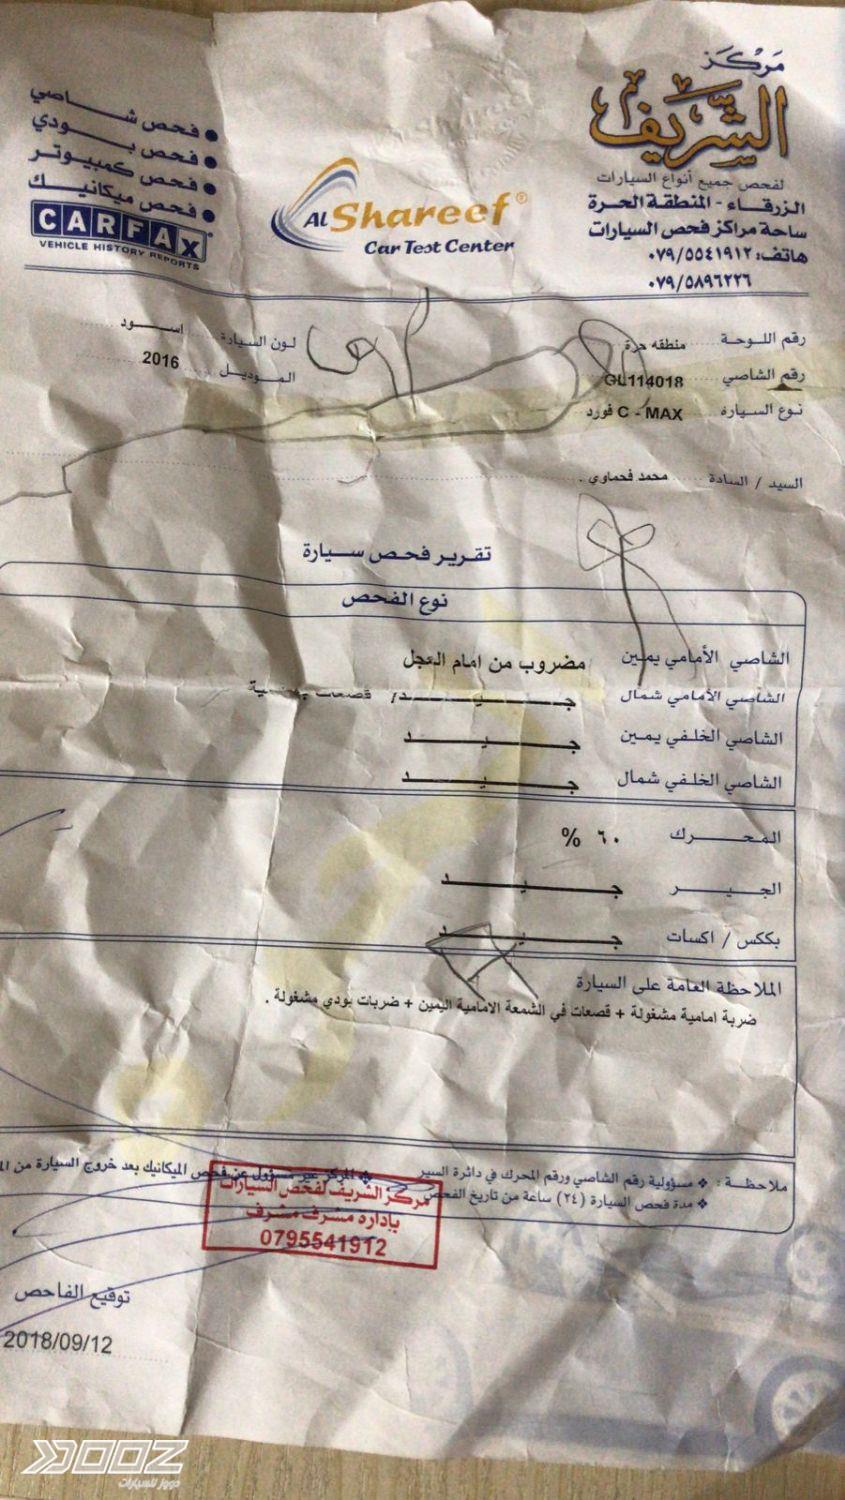 مركز
الشريف
لفحص جميع أنواع السيارات
الزرقاء - المنطقة الحرة
ساحة مراكز فحص السيارات
هاتف: ٠٧٩/٥٥٤١٩١٢
٠٧٩/٥٨٩٦٢٢٦
AL Shareef®
Car Test Center
• فحص شاصي
• فحص بودي
• فحص كمبيوتر
• فحص ميكانيك
CARFAX
VEHICLE HISTORY REPORTS
رقم اللوحة منطقه حرة لون السيارة اسود
رقم الشاصي GL114018 الموديل 2016
نوع السياره فورد C - MAX
السيد / السادة محمد فحماوي .
تقرير فحص سيارة
نوع الفحص
الشاصي الأمامي يمين مضروب من امام العجل
الشاصي الأمامي شمال جيد / قصعات
الشاصي الخلفي يمين جيد
الشاصي الخلفي شمال جيد
المحرك ٦٠ %
الجير جيد
بكس / اكسات جيد
الملاحظة العامة على السيارة
ضربة امامية مشغولة + قصعات في الشمعة الامامية اليمين + ضربات بودي مشغولة .
ملاحظة : ❖ مسؤولية رقم الشاصي ورقم المحرك في دائرة السير ❖ المركز غير مسؤول عن فحص الميكانيك بعد خروج السيارة من
❖ مدة فحص السيارة (٢٤) ساعة من تاريخ الفحص
مركز الشريف لفحص السيارات
بإدارة مشرف مشرف
0795541912
توقيع الفاحص
2018/09/12
DOOZ
دووز للسيارات